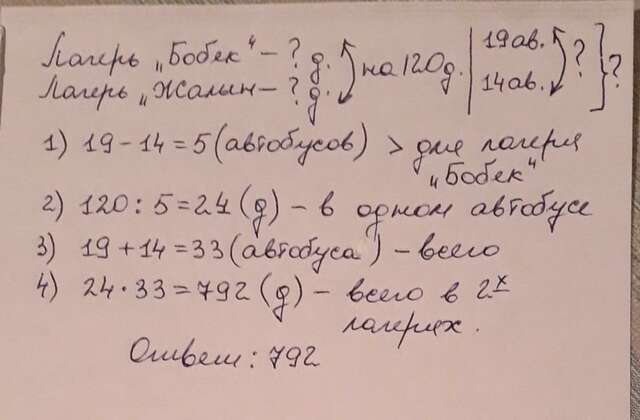 Лагерь „Бобек“ – ? д. на 120 д. 19 ав. ? ?
Лагерь „Жалын – ? д. 14 ав.
1) 19 - 14 = 5 (автобусов) > для лагеря
„Бобек“
2) 120 : 5 = 24 (д) – в одном автобусе
3) 19 + 14 = 33 (автобуса) – всего
4) 24 · 33 = 792 (д) – всего в 2х
лагерях.
Ответ: 792